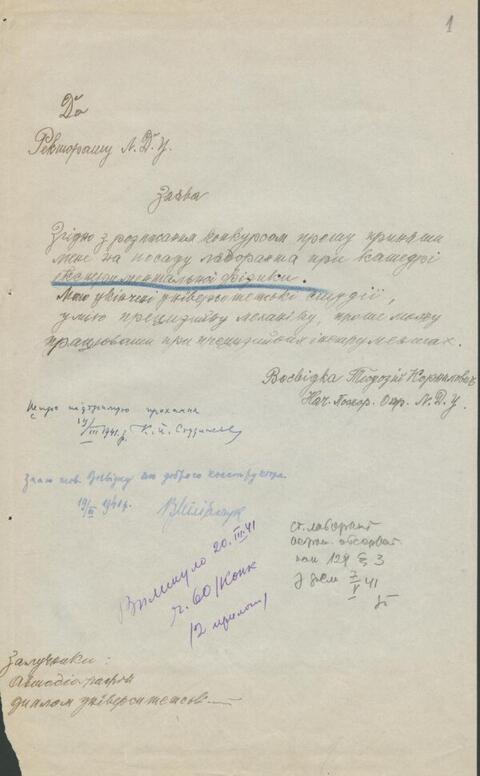 1
До
Ректорату Л.Д.У.
Заява
Згідно з розписаним конкурсом прошу приняти
мене на посаду лаборанта при катедрі
експериментальної фізики.
Маю укінчені університетські студії,
умію прецизійну механіку, проте можу
працювати при прецизійних інструментах.
Восвідка Теодозій Корнилович
Нач. Пожор. Охр. Л.Д.У.
підтримую прохання
14/III 1941 р. К. Й. Студинський
Знаю тов. Восвідку як доброго конструктора.
19/III 1941 р.
Вплинуло 20.III.41
ч. 60/Конк
/2 прилоги/
ст. лаборант
астрон. обсерват.
нак 124 § 3
з днем 7/V 41
Залучники:
Автобіографія
диплом університетський